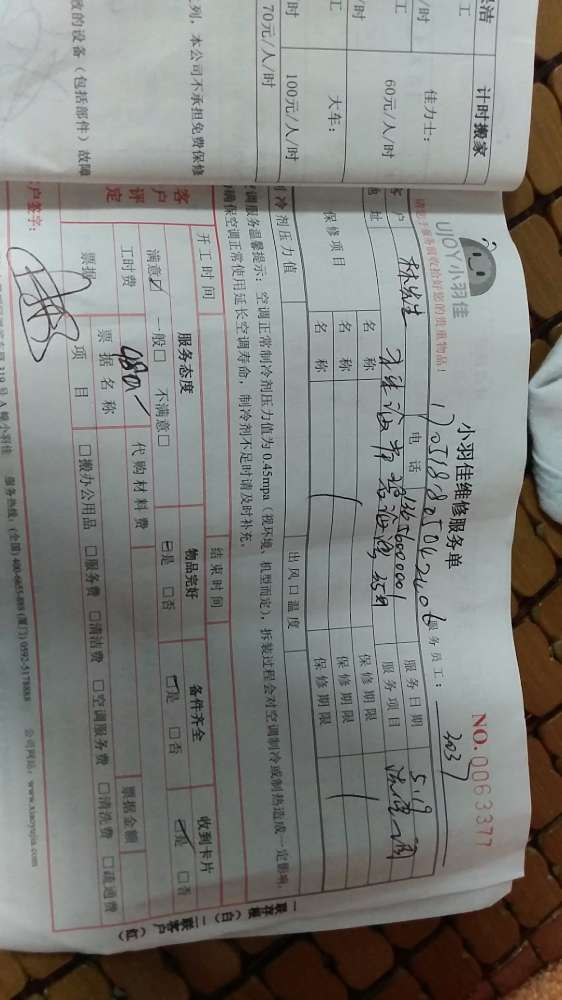 计时搬家
佳力士：
60元/人/时
大车：
100元/人/时
70元/人/时
列，本公司不承担免费保修
的设备（包括部件）故障
UJOY小羽佳
小羽佳维修服务单
NO.0063377
服务员工：
客户
林先生
电话
服务日期
5.19
地址
服务项目
保修项目
名称
保修期限
名称
保修期限
名称
保修期限
制冷剂压力值
出风口温度
空调服务温馨提示：空调正常制冷剂压力值为0.45mpa（视环境，机型而定），拆装过程会对空调制冷或制热造成一定影响，
确保空调正常使用延长空调寿命，制冷剂不足时请及时补充。
开工时间
结束时间
客户评定
服务态度
物品完好
备件齐全
收到卡片
满意☑ 一般□ 不满意□
☑是 □否
☑是 □否
☑是 □否
工时费
480
代购材料费
票据金额
票据
票据名称
项目
□搬办公用品 □服务费 □清洁费 □空调服务费 □清洗费 □疏通费
客户签字：
319号A幢小羽佳 服务热线：(全国)400-6655-888(厦门)0592-5178888 公司网站：www.xiaoyujia.com
一联存根（白）二联客户（红）